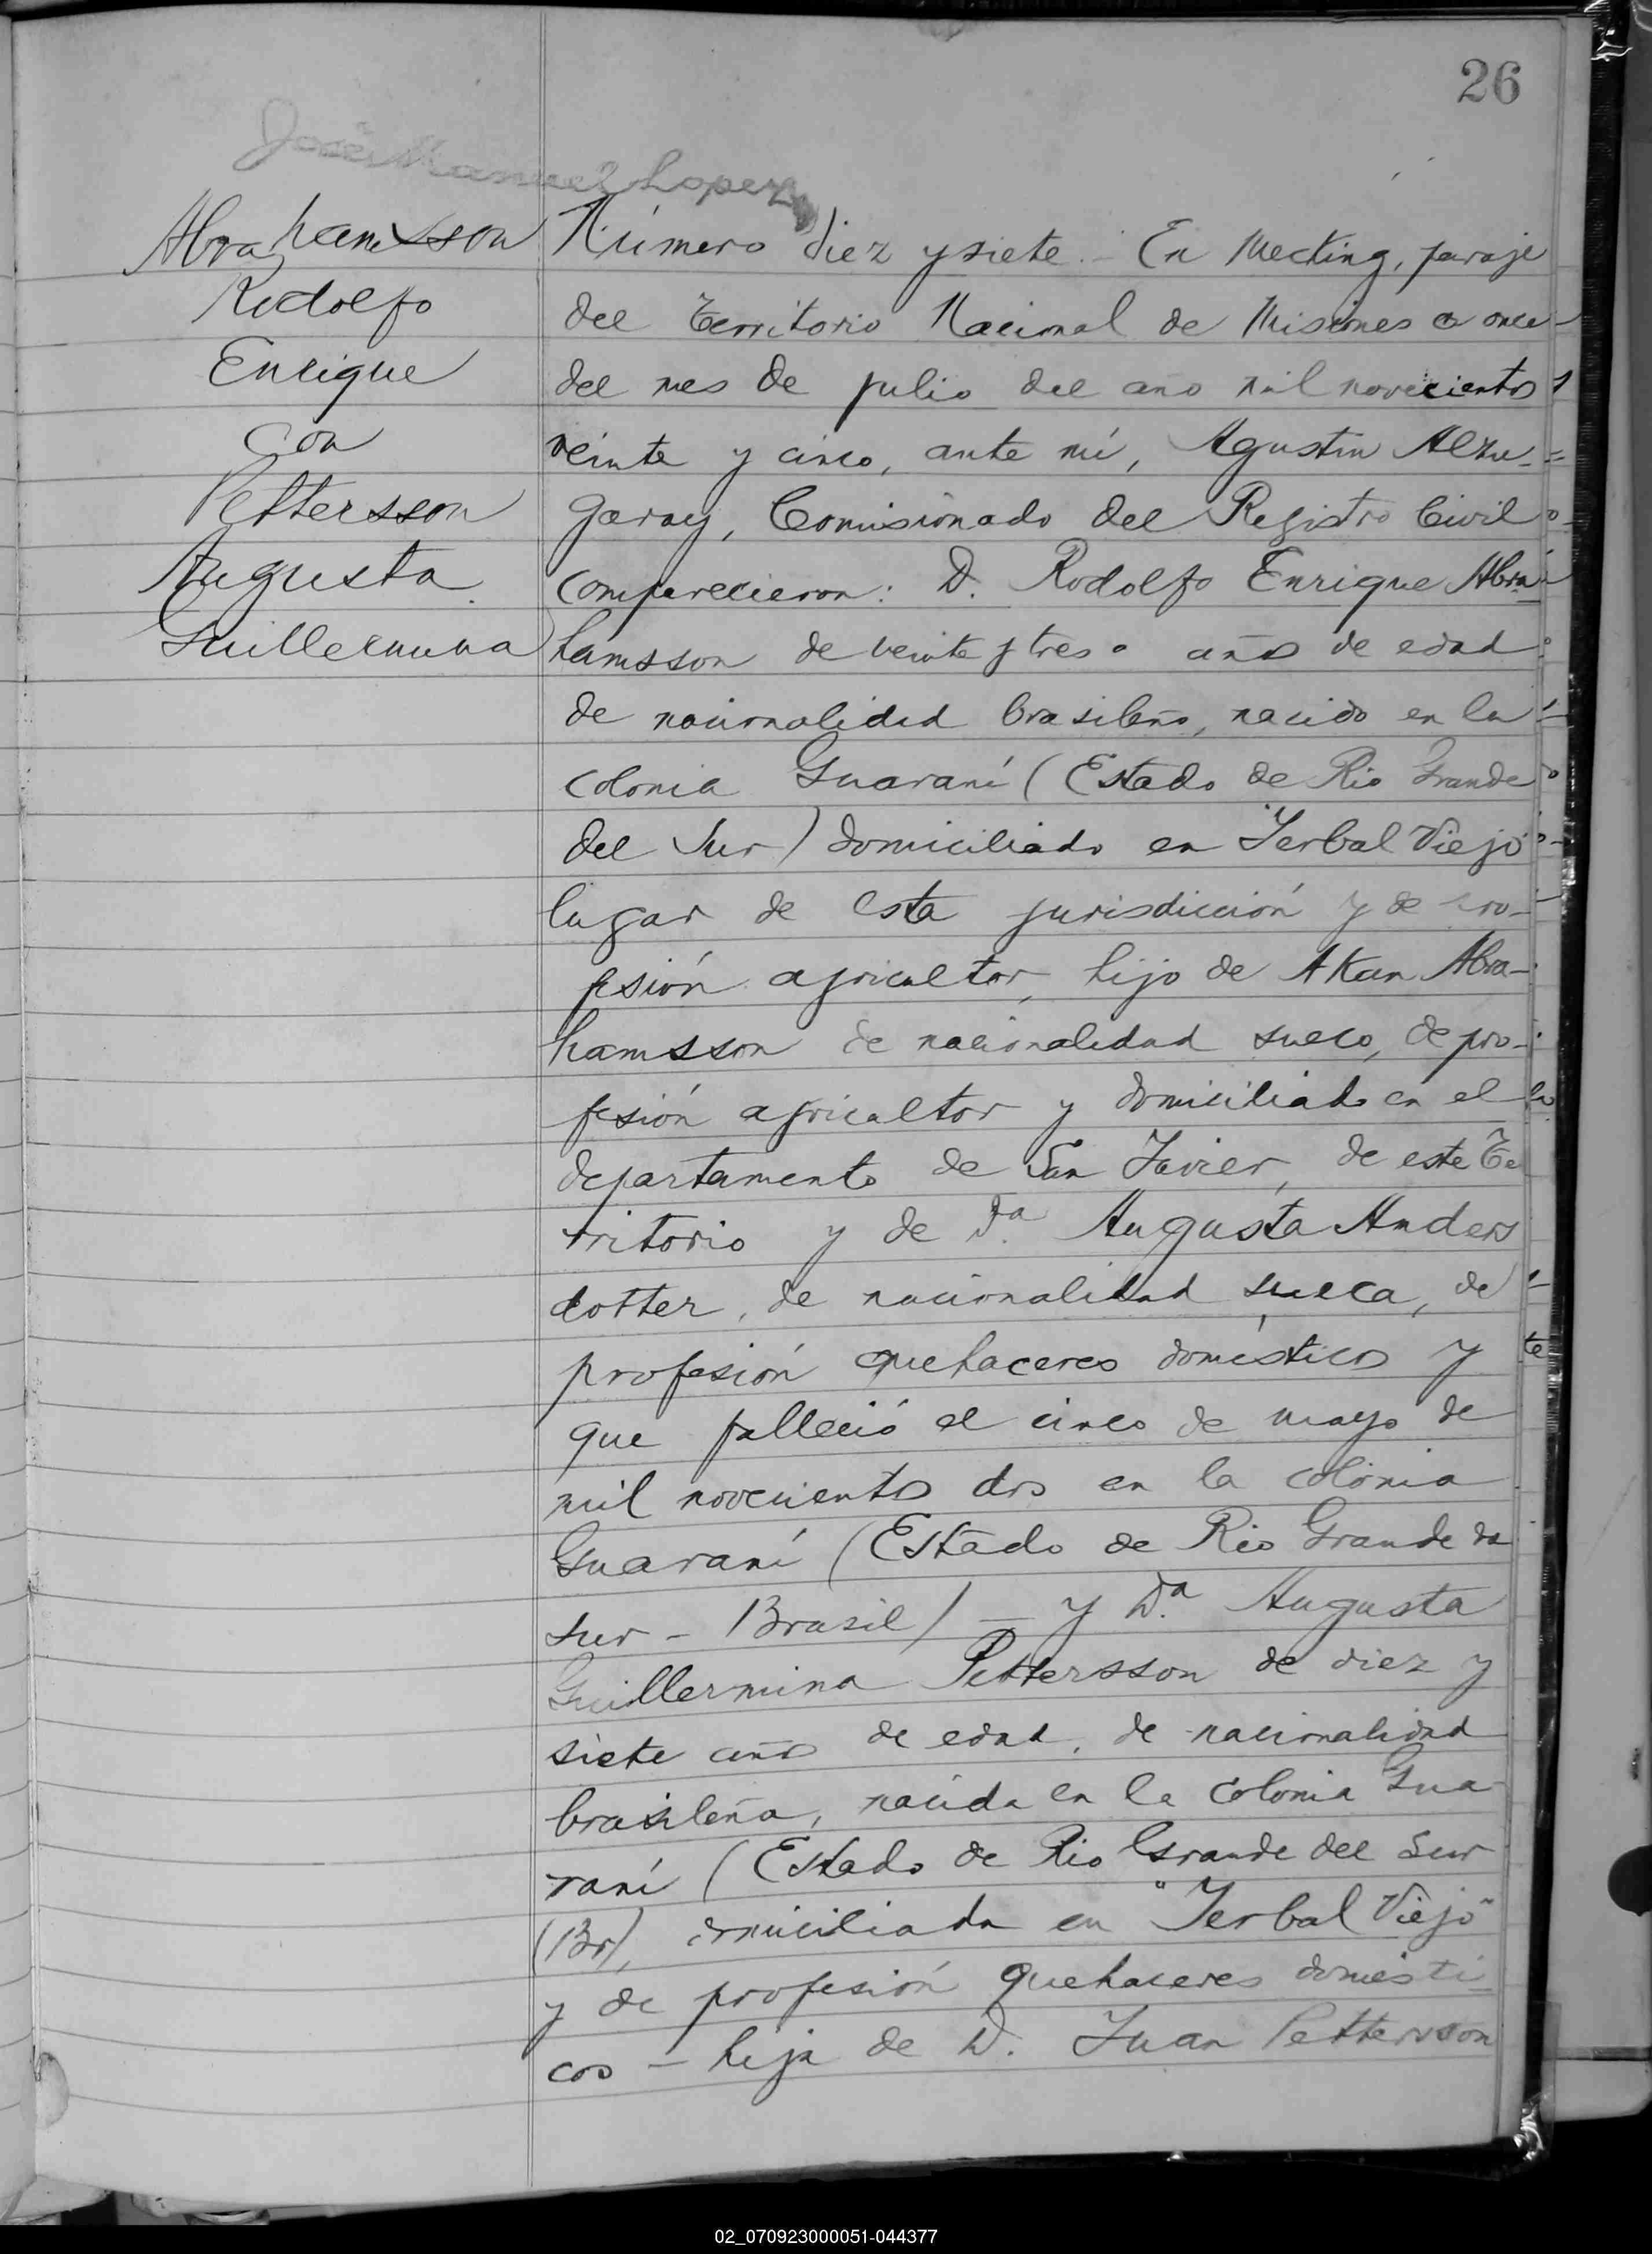 26
José Manuel Lopez
Abrahamsson
Rodolfo
Enrique
con
Pettersson
Augusta
Guillermina
Número diez y siete.- En Mecking, paraje
del Territorio Nacional de Misiones a once
del mes de julio del año mil novecientos
veinte y cinco, ante mí, Agustin Alzu-
garay, Comisionado del Registro Civil
comparecieron: D. Rodolfo Enrique Abra-
hamsson de veinte y tres años de edad
de nacionalidad brasileño, nacido en la
colonia Guaraní (Estado de Rio Grande
del Sur) domiciliado en "Yerbal Viejo"
lugar de esta jurisdicción y de pro-
fesión agricultor, hijo de Akan Abra-
hamsson de nacionalidad sueco, de pro-
fesión agricultor y domiciliado en el
departamento de San Javier, de este Te
rritorio y de Da. Augusta Anders
dotter, de nacionalidad sueca, de
profesión quehaceres domésticos y
que falleció el cinco de mayo de
mil novecientos dos en la colonia
Guaraní (Estado de Rio Grande do
Sur - Brasil) - y Da. Augusta
Guillermina Pettersson de diez y
siete años de edad, de nacionalidad
brasileña, nacida en la colonia Gua
raní (Estado de Rio Grande del Sur
(Br), domiciliada en "Yerbal Viejo"
y de profesión quehaceres domésti-
cos - hija de D. Juan Pettersson
02_070923000051-044377